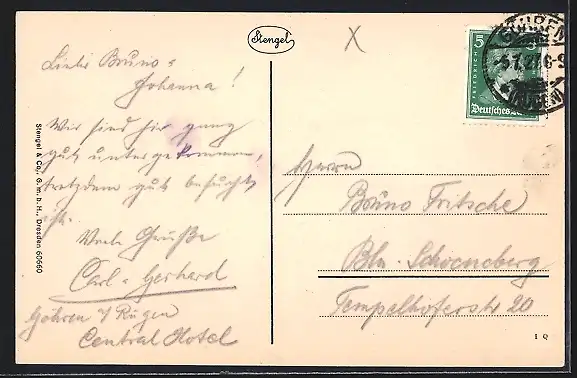 Stengel
X
Liebe Bruno =
Johanna!
Wir sind hier ganz
gut untergekommen,
trotzdem gut besucht
ist.
Viele Grüße
Carl = Gerhard
Göhren a/ Rügen
Central Hotel
Stengel & Co., G. m. b. H., Dresden 60660
5
FRIEDRICH
Deutsches
GÖHREN
RÜGEN
Herrn
Bruno Fritsche
Bln. Schoeneberg
Tempelhoferstr 20
1 Q